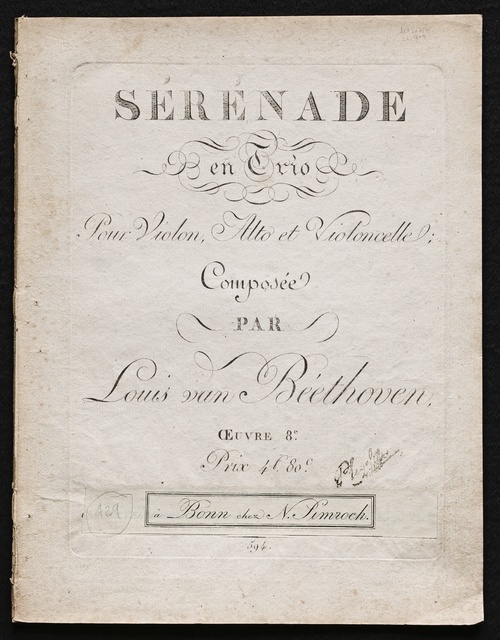 SÉRÉNADE
en Trio
Pour Violon, Alto et Violoncelle;
Composée
PAR
Louis van Béethoven.
ŒUVRE 8.e
Prix 4f. 80c.
à Bonn chez N. Simrock.
594.